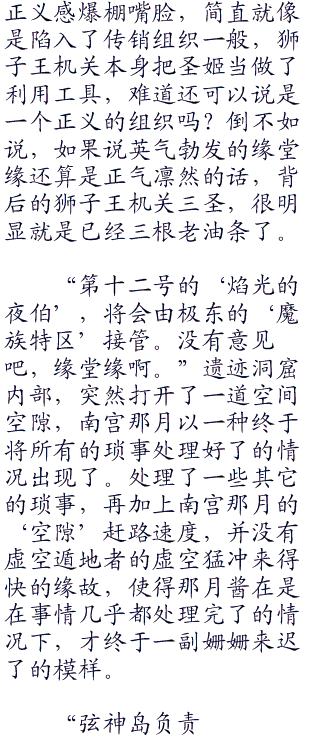 正义感爆棚嘴脸，简直就像
是陷入了传销组织一般，狮
子王机关本身把圣姬当做了
利用工具，难道还可以说是
一个正义的组织吗？倒不如
说，如果说英气勃发的缘堂
缘还算是正气凛然的话，背
后的狮子王机关三圣，很明
显就是已经三根老油条了。
“第十二号的‘焰光的
夜伯’，将会由极东的‘魔
族特区’接管。没有意见
吧，缘堂缘啊。”遗迹洞窟
内部，突然打开了一道空间
空隙，南宫那月以一种终于
将所有的琐事处理好了的情
况出现了。处理了一些其它
的琐事，再加上南宫那月的
‘空隙’赶路速度，并没有
虚空遁地者的虚空猛冲来得
快的缘故，使得那月酱在是
在事情几乎都处理完了的情
况下，才终于一副姗姗来迟
了的模样。
“弦神岛负责